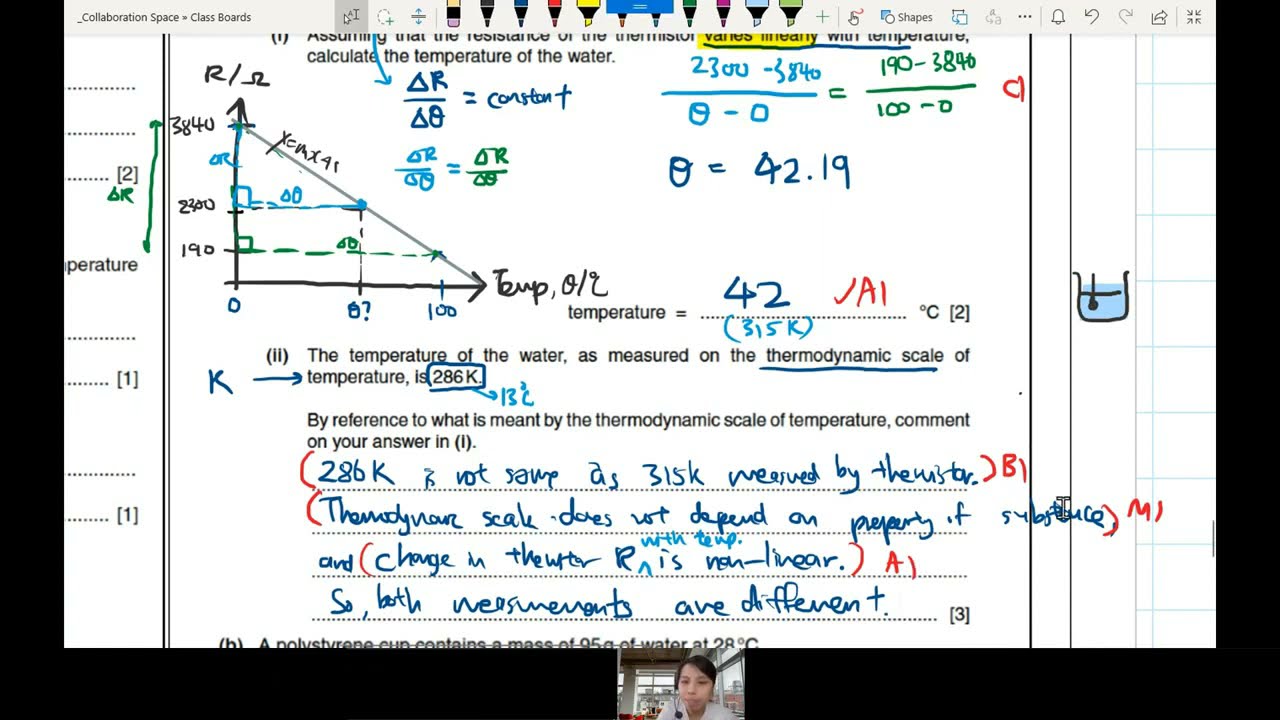 _Collaboration Space » Class Boards
Shapes
(i) Assuming that the resistance of the thermistor varies linearly with temperature,
calculate the temperature of the water.
R/Ω
3840
2300
190
0
θ?
100
Temp, θ/℃
ΔR
ΔR
Δθ
Δθ
ΔR/Δθ = constant
ΔR/Δθ = ΔR/Δθ
2300 - 3840 / θ - 0 = 190 - 3840 / 100 - 0
C1
θ = 42.19
[2]
perature
[1]
[1]
temperature = 42 ✓A1 °C [2]
(315K)
(ii) The temperature of the water, as measured on the thermodynamic scale of
K → temperature, is 286 K.
13℃
By reference to what is meant by the thermodynamic scale of temperature, comment
on your answer in (i).
(286K is not same as 315K measured by thermistor.) B1
(Thermodynamic scale does not depend on property of substance,) M1
and (change in thermistor R with temp. is non-linear.) A1
So, both measurements are different.
[3]
(b) A polystyrene cup contains a mass of 95 g of water at 28 °C.